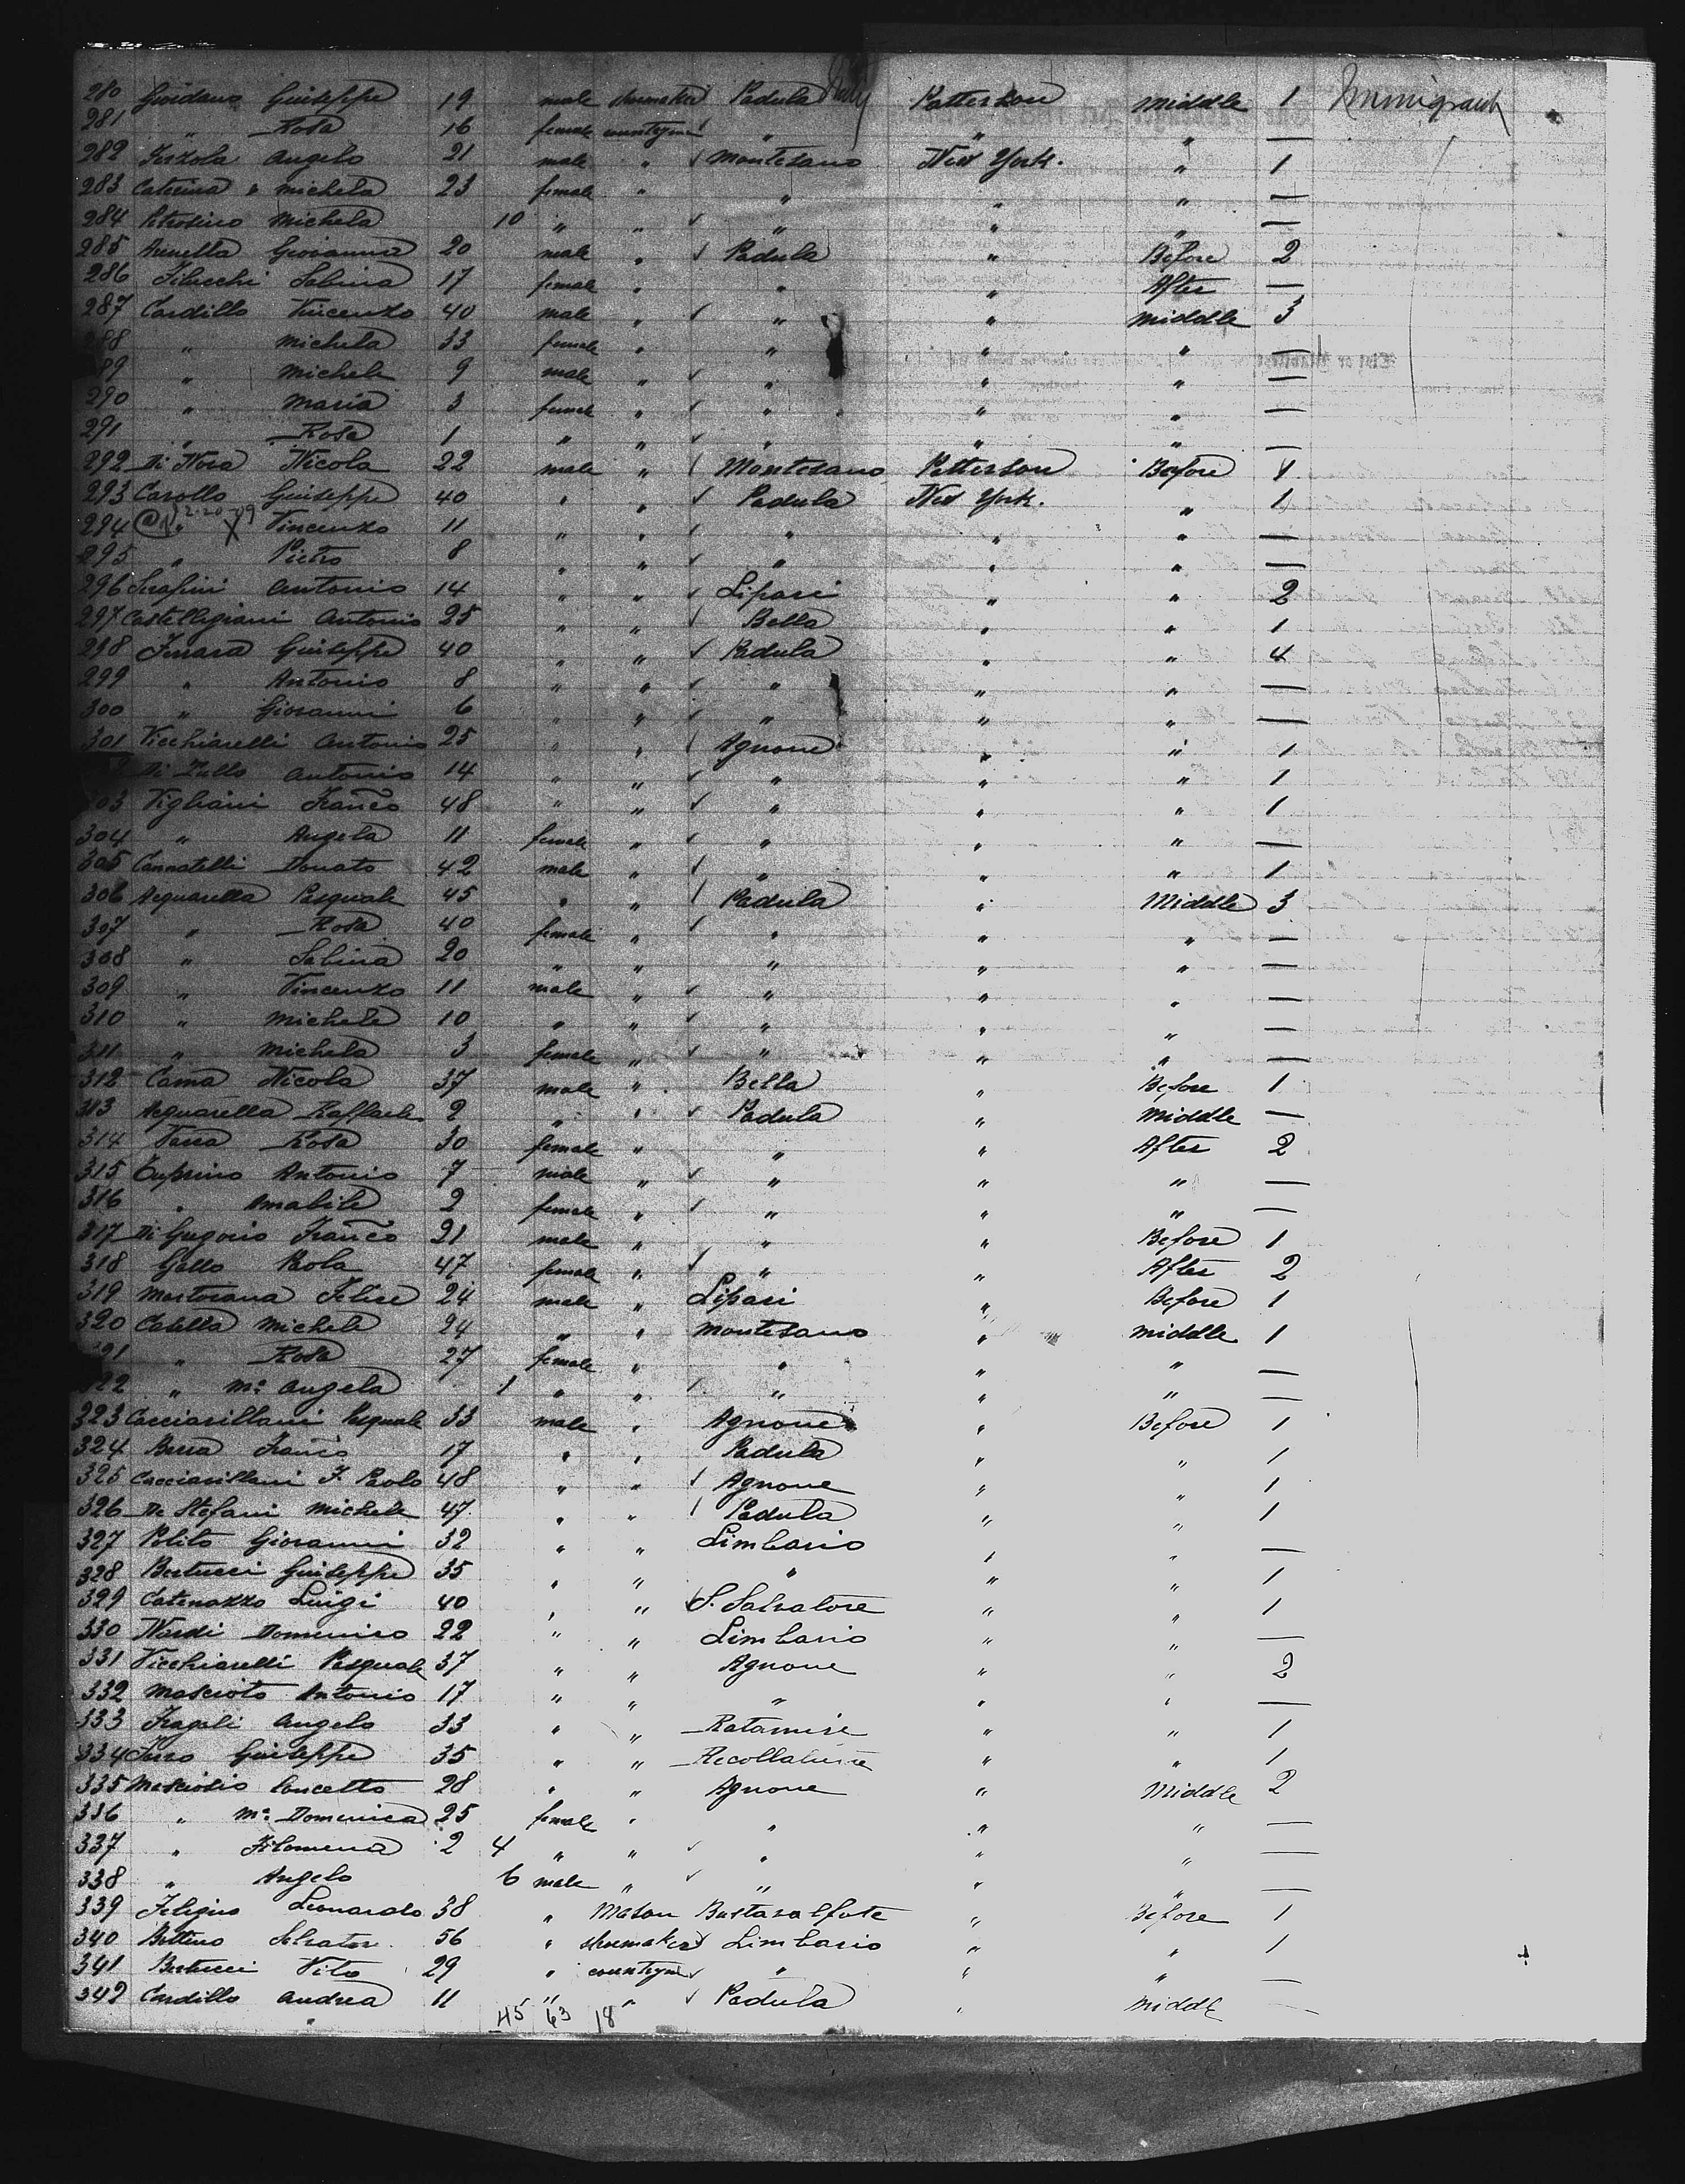 280 Giordano Giuseppe 19 male shoemaker Padula Italy Patterson Middle 1 Immigrant
281 " Rosa 16 female countryman " " " —
282 Angelo 21 male " Montesano New York. " 1
283 Caterina " Michela 23 female " " " " —
284 Petrosino Michela 10 " " " " " —
285 Giovanni 20 male " Padula " Before 2
286 Sabina 17 female " " " After —
287 Cardillo Vincenzo 40 male " " " Middle 3
288 " Michela 33 female " " " " —
289 " Michele 9 male " " " " —
290 " Maria 3 female " " " " —
291 " Rosa 1 " " " " " —
292 Di Nora Nicola 22 male " Montesano Patterson Before 1
293 Carollo Giuseppe 40 " " Padula New York. " 1
294 " X Vincenzo 11 " " " " " —
295 " Pietro 8 " " " " " —
296 Serafini Antonio 14 " " Lipari " " 2
297 Castellegrani Antonio 25 " " Bella " " 1
298 Ferrara Giuseppe 40 " " Padula " " 4
299 " Antonio 8 " " " " " —
300 " Giovanni 6 " " " " " —
301 Vecchiarelli Antonio 25 " " Agnone " " 1
302 Di Tullo Antonio 14 " " " " " 1
303 Vigliani Franco 48 " " " " " 1
304 " Angela 11 female " " " " —
305 Cannatelli Donato 42 male " " " " 1
306 Acquarella Pasquale 45 " " Padula " Middle 3
307 " Rosa 40 female " " " " —
308 " Sabina 20 " " " " " —
309 " Vincenzo 11 male " " " " —
310 " Michele 10 " " " " " —
311 " Michela 3 female " " " " —
312 Cama Nicola 37 male " Bella " Before 1
313 Acquarella Raffaele 2 " " Padula " Middle —
314 Rosa 30 female " " " After 2
315 Antonio 7 male " " " " —
316 " Amabile 2 female " " " " —
317 Di Gregorio Franco 21 male " " " Before 1
318 Gallo Paola 47 female " " " After 2
319 Martorana Felice 24 male " Lipari " Before 1
320 Cotella Michele 24 " " Montesano " Middle 1
321 " Rosa 27 female " " " " —
322 " Ma Angela 1 " " " " " —
323 Cacciavillani Pasquale 33 male " Agnone " Before 1
324 Franco 17 " " Padula " " 1
325 Cacciavillani F. Paolo 48 " " Agnone " " 1
326 De Stefani Michele 47 " " Padula " " 1
327 Polito Giovanni 32 " " Limbario " " —
328 Bertucci Giuseppe 35 " " " " " 1
329 Catenazzo Luigi 40 " " S. Salvatore " " 1
330 Nardi Domenico 22 " " Limbario " " —
331 Vecchiarelli Pasquale 37 " " Agnone " " 2
332 Mascioto Antonio 17 " " " " " —
333 Fragali Angelo 33 " " Ratamise " " 1
334 Giuseppe 35 " " " " 1
335 Concetto 28 " " Agnone " Middle 2
336 " Ma Domenica 25 female " " " " —
337 " Filomena 2 4 " " " " " —
338 " Angelo 6 male " " " " —
339 Leonardo 38 " Mason " Before 1
340 Bottino Salvatore 56 " shoemaker Limbario " " 1
341 Bertucci Vito 29 " countryman " " " —
342 Cardillo Andrea 11 " " Padula " Middle —
45 63 18